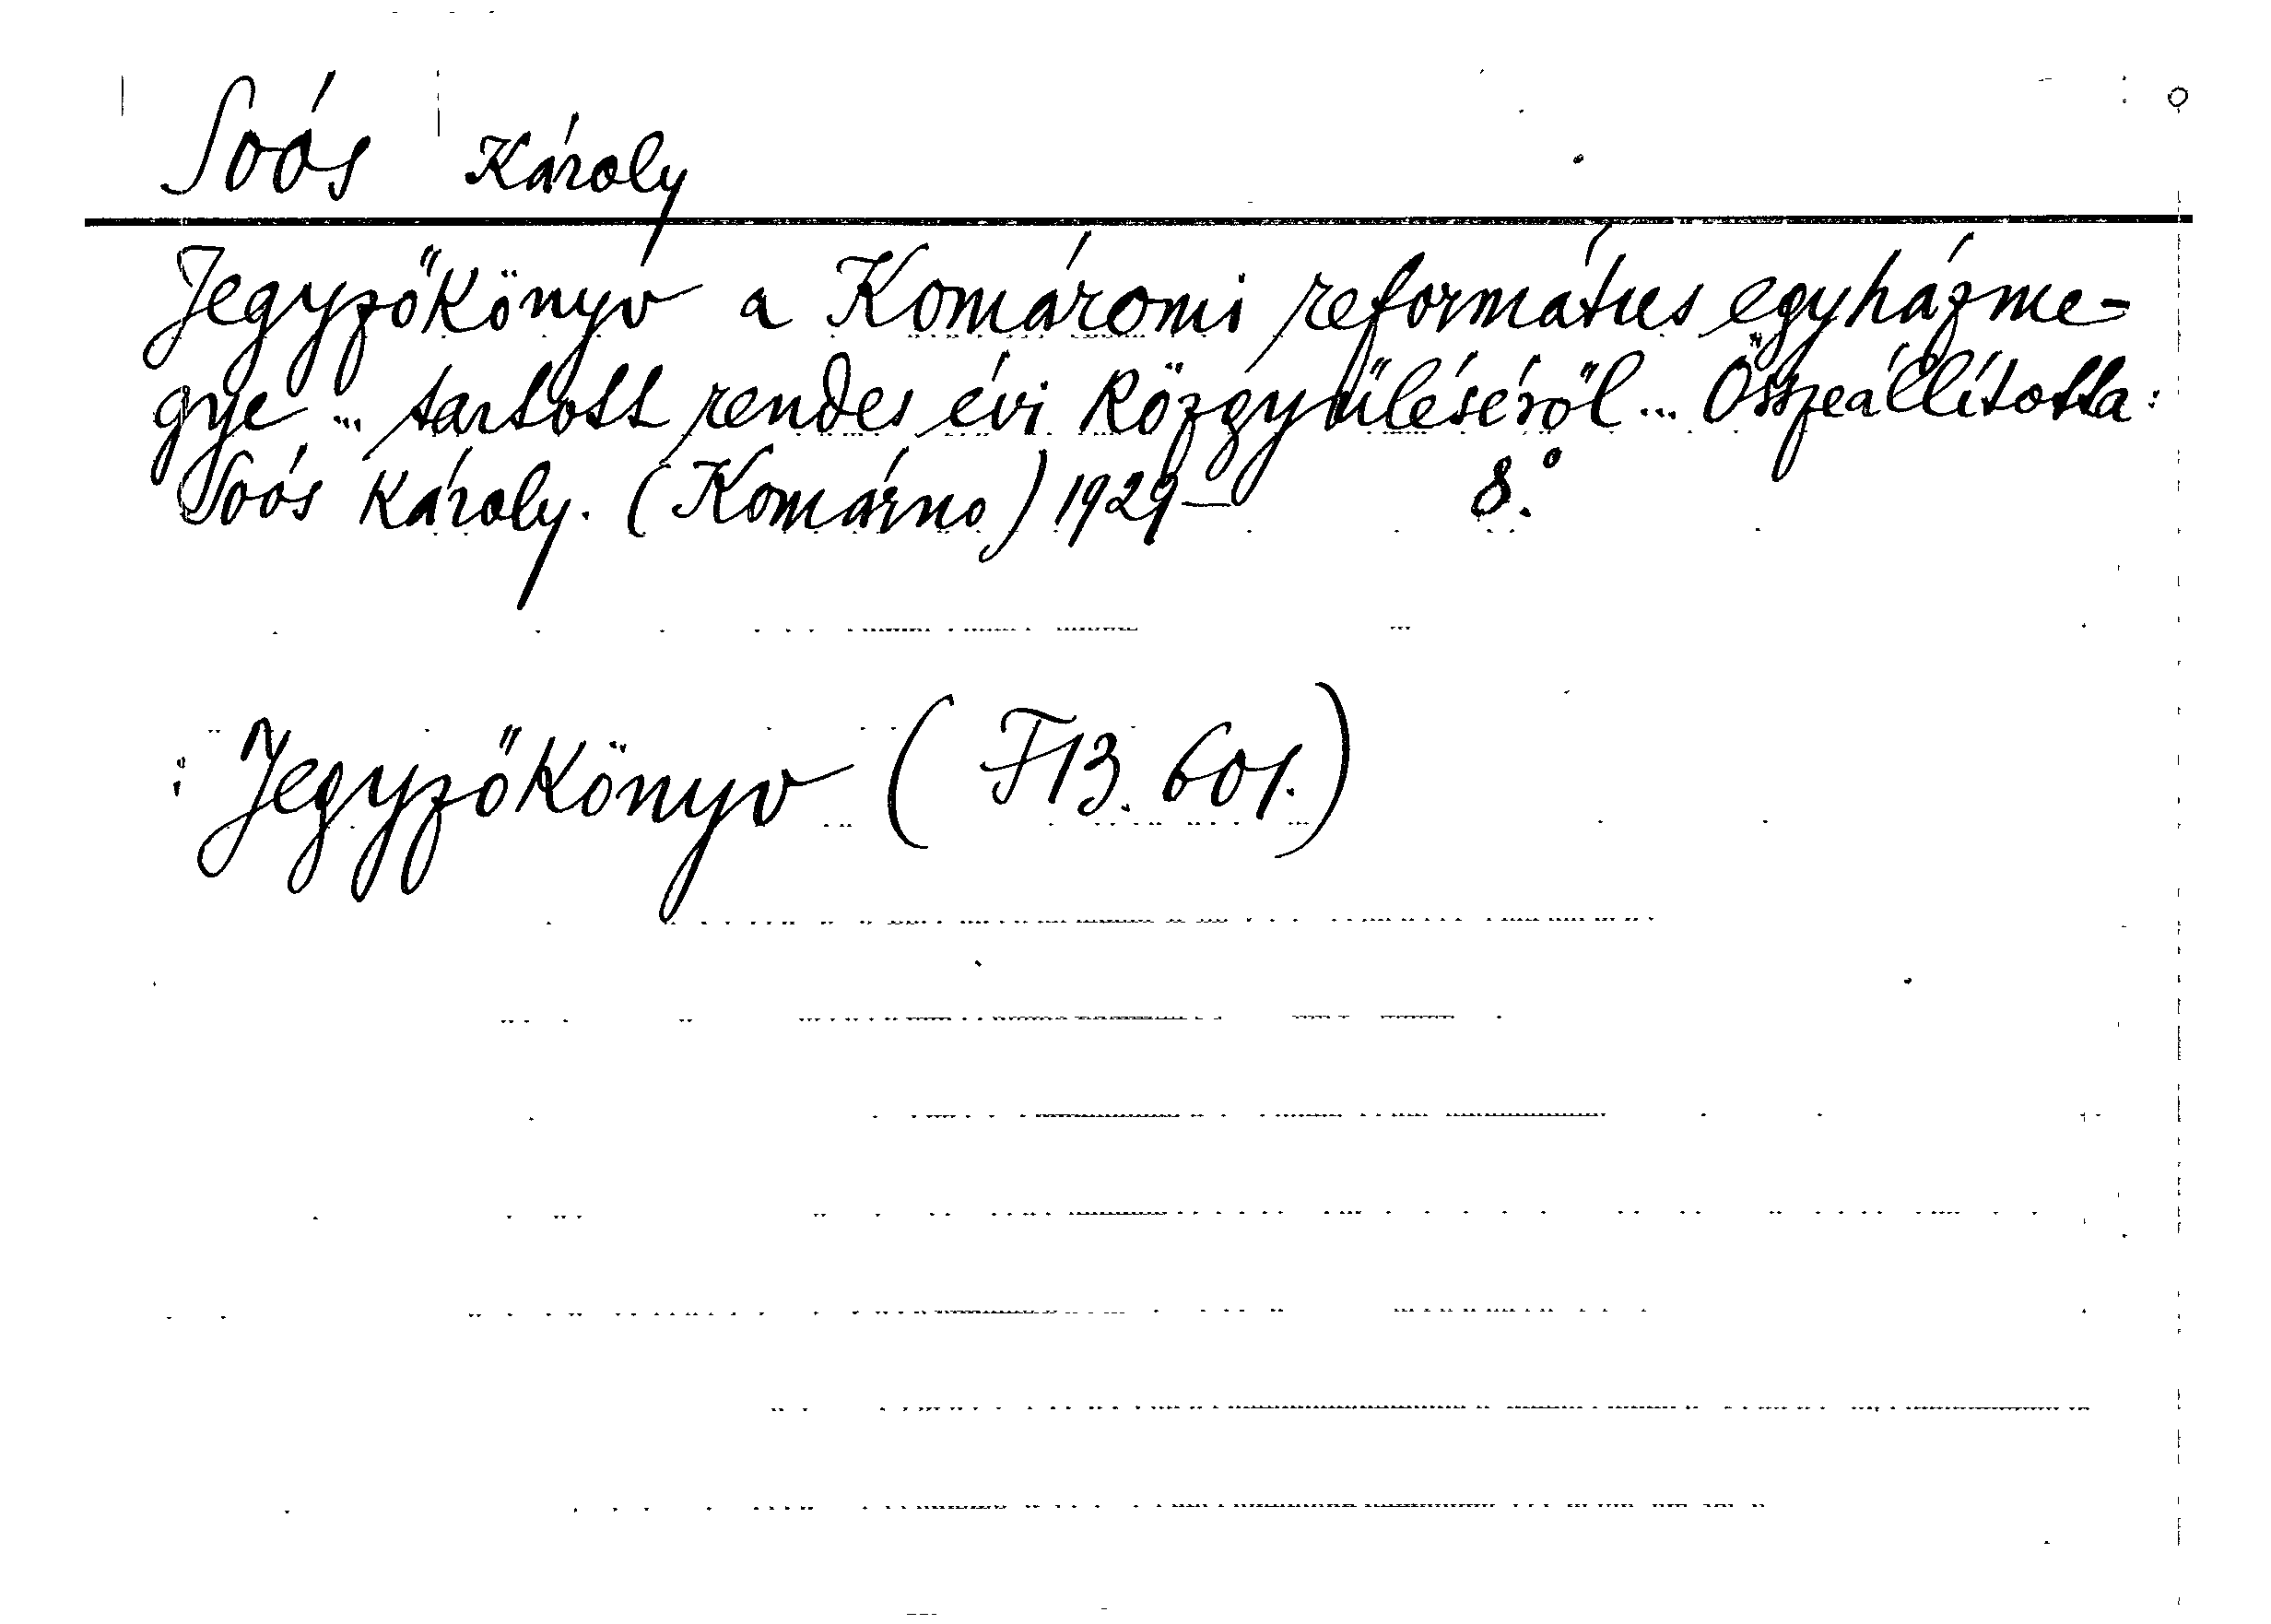 Soós Károly
Jegyzőkönyv a Komáromi református egyházme-
gye ... tartott rendes évi közgyűléséről ... Összeállította:
Soós Károly. (Komárno) 1929– 8.°
: Jegyzőkönyv (F13.601.)